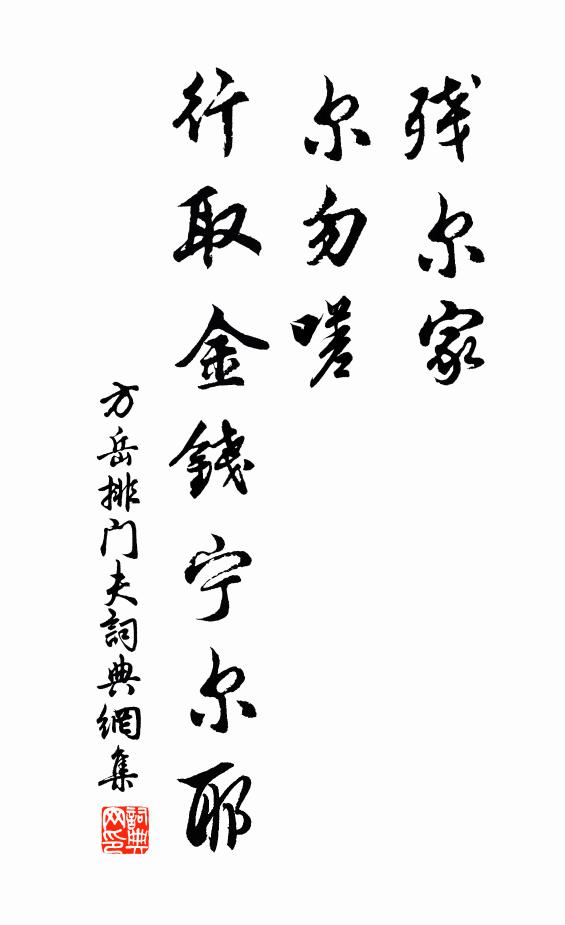 残尔家
尔勿嗟
行取金錢宁尔耶
方岳排门夫詞典網集
詞典网印